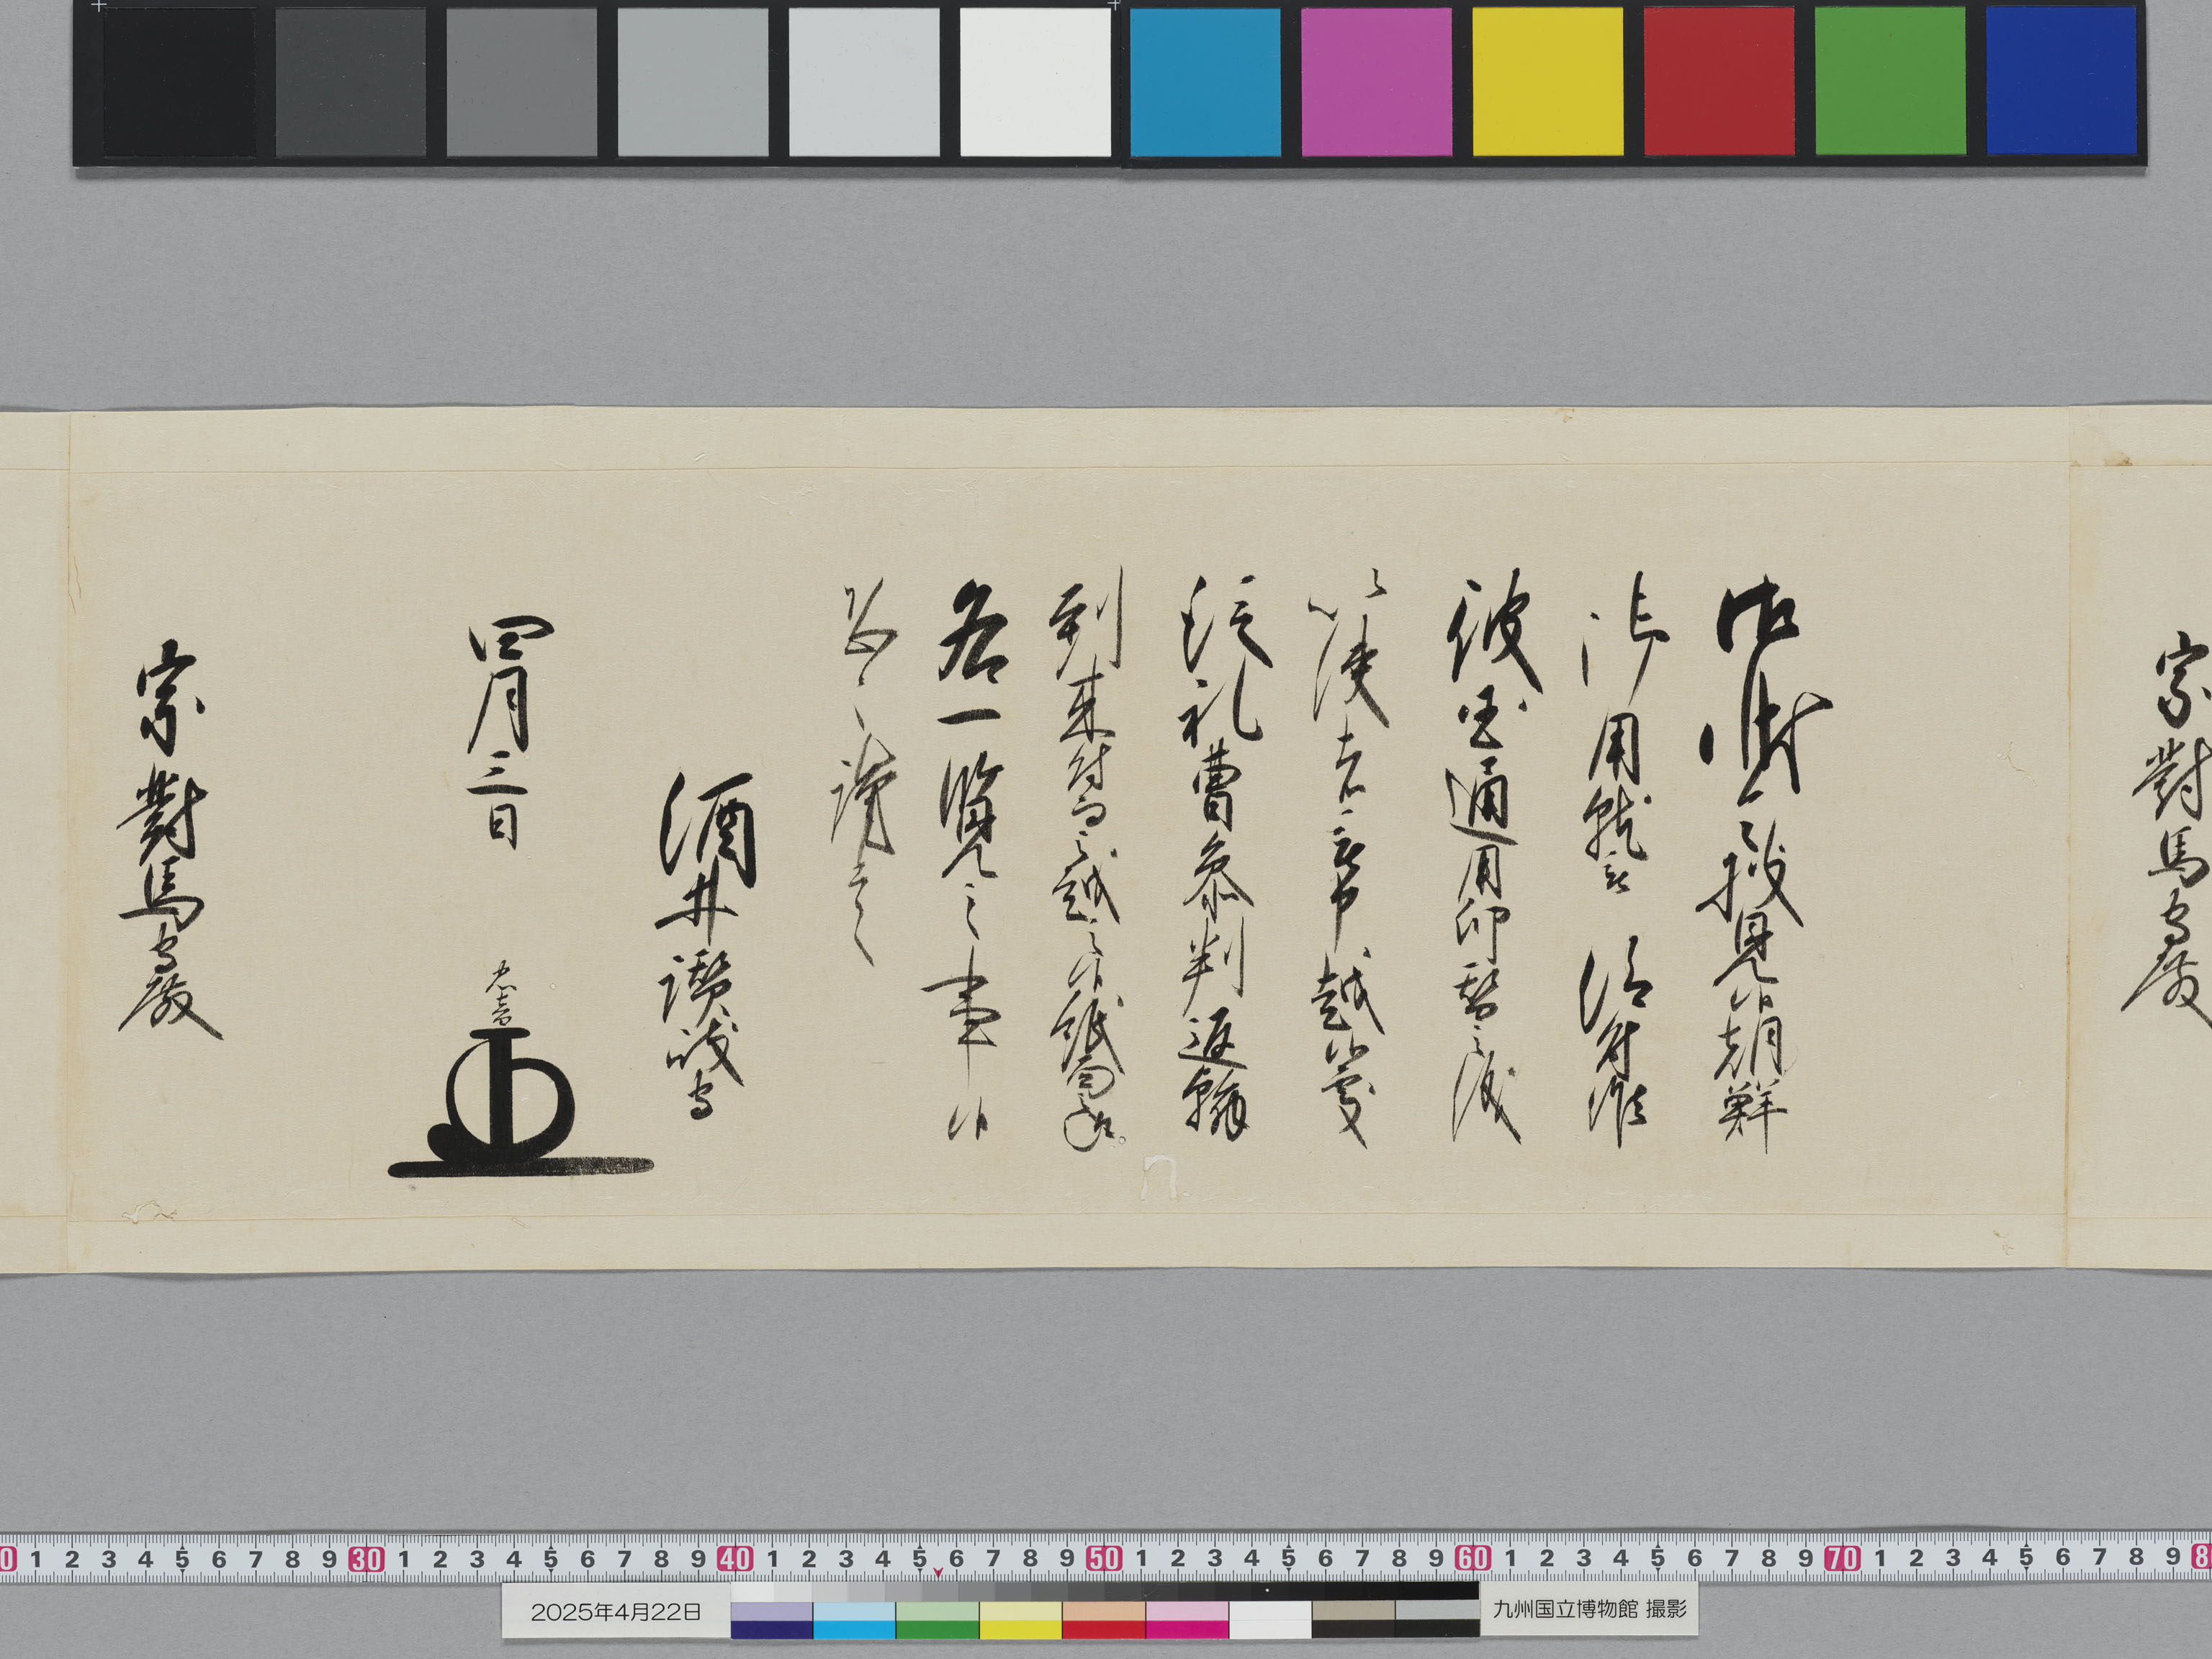 宗對馬守殿
御状令披見候朝鮮
用就
彼国通用印鑑之儀
以使者被申越候處
從礼曹參判返翰
到来付而越之候紙面
各一覽之事候
恐々謹言
酒井讃岐守
四月三日
忠音
宗對馬守殿
0 1 2 3 4 5 6 7 8 9 30 1 2 3 4 5 6 7 8 9 40 1 2 3 4 5 6 7 8 9 50 1 2 3 4 5 6 7 8 9 60 1 2 3 4 5 6 7 8 9 70 1 2 3 4 5 6 7 8 9 8
2025年4月22日
九州国立博物館 撮影